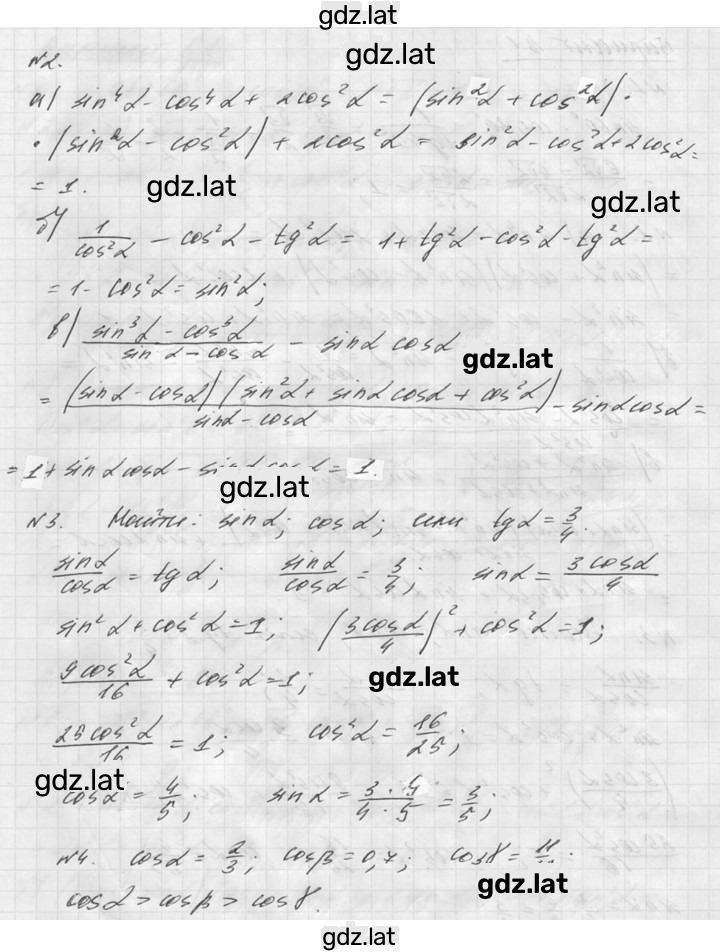 gdz.lat
gdz.lat
№2.
а) sin⁴α - cos⁴α + 2cos²α = (sin²α + cos²α) ·
· (sin²α - cos²α) + 2cos²α = sin²α - cos²α + 2cos²α =
= 1.
gdz.lat
gdz.lat
б) 1/cos²α - cos²α - tg²α = 1 + tg²α - cos²α - tg²α =
= 1 - cos²α = sin²α;
в) (sin³α - cos³α)/(sin α - cos α) - sinα cosα
gdz.lat
= (sinα - cosα)(sin²α + sinα cosα + cos²α)/(sinα - cosα) - sinα cosα =
= 1 + sinα cosα - sinα cosα = 1.
gdz.lat
№3. Найти: sinα; cosα; если tgα = 3/4.
sinα/cosα = tgα; sinα/cosα = 3/4; sinα = 3cosα/4
sin²α + cos²α = 1; (3cosα/4)² + cos²α = 1;
9cos²α/16 + cos²α = 1;
gdz.lat
25cos²α/16 = 1; cos²α = 16/25;
gdz.lat
cosα = 4/5; sinα = 3·4/4·5 = 3/5;
№4. cosα = 2/3; cosβ = 0,7; cosγ = 11
gdz.lat
cosα > cosβ > cosγ.
gdz.lat